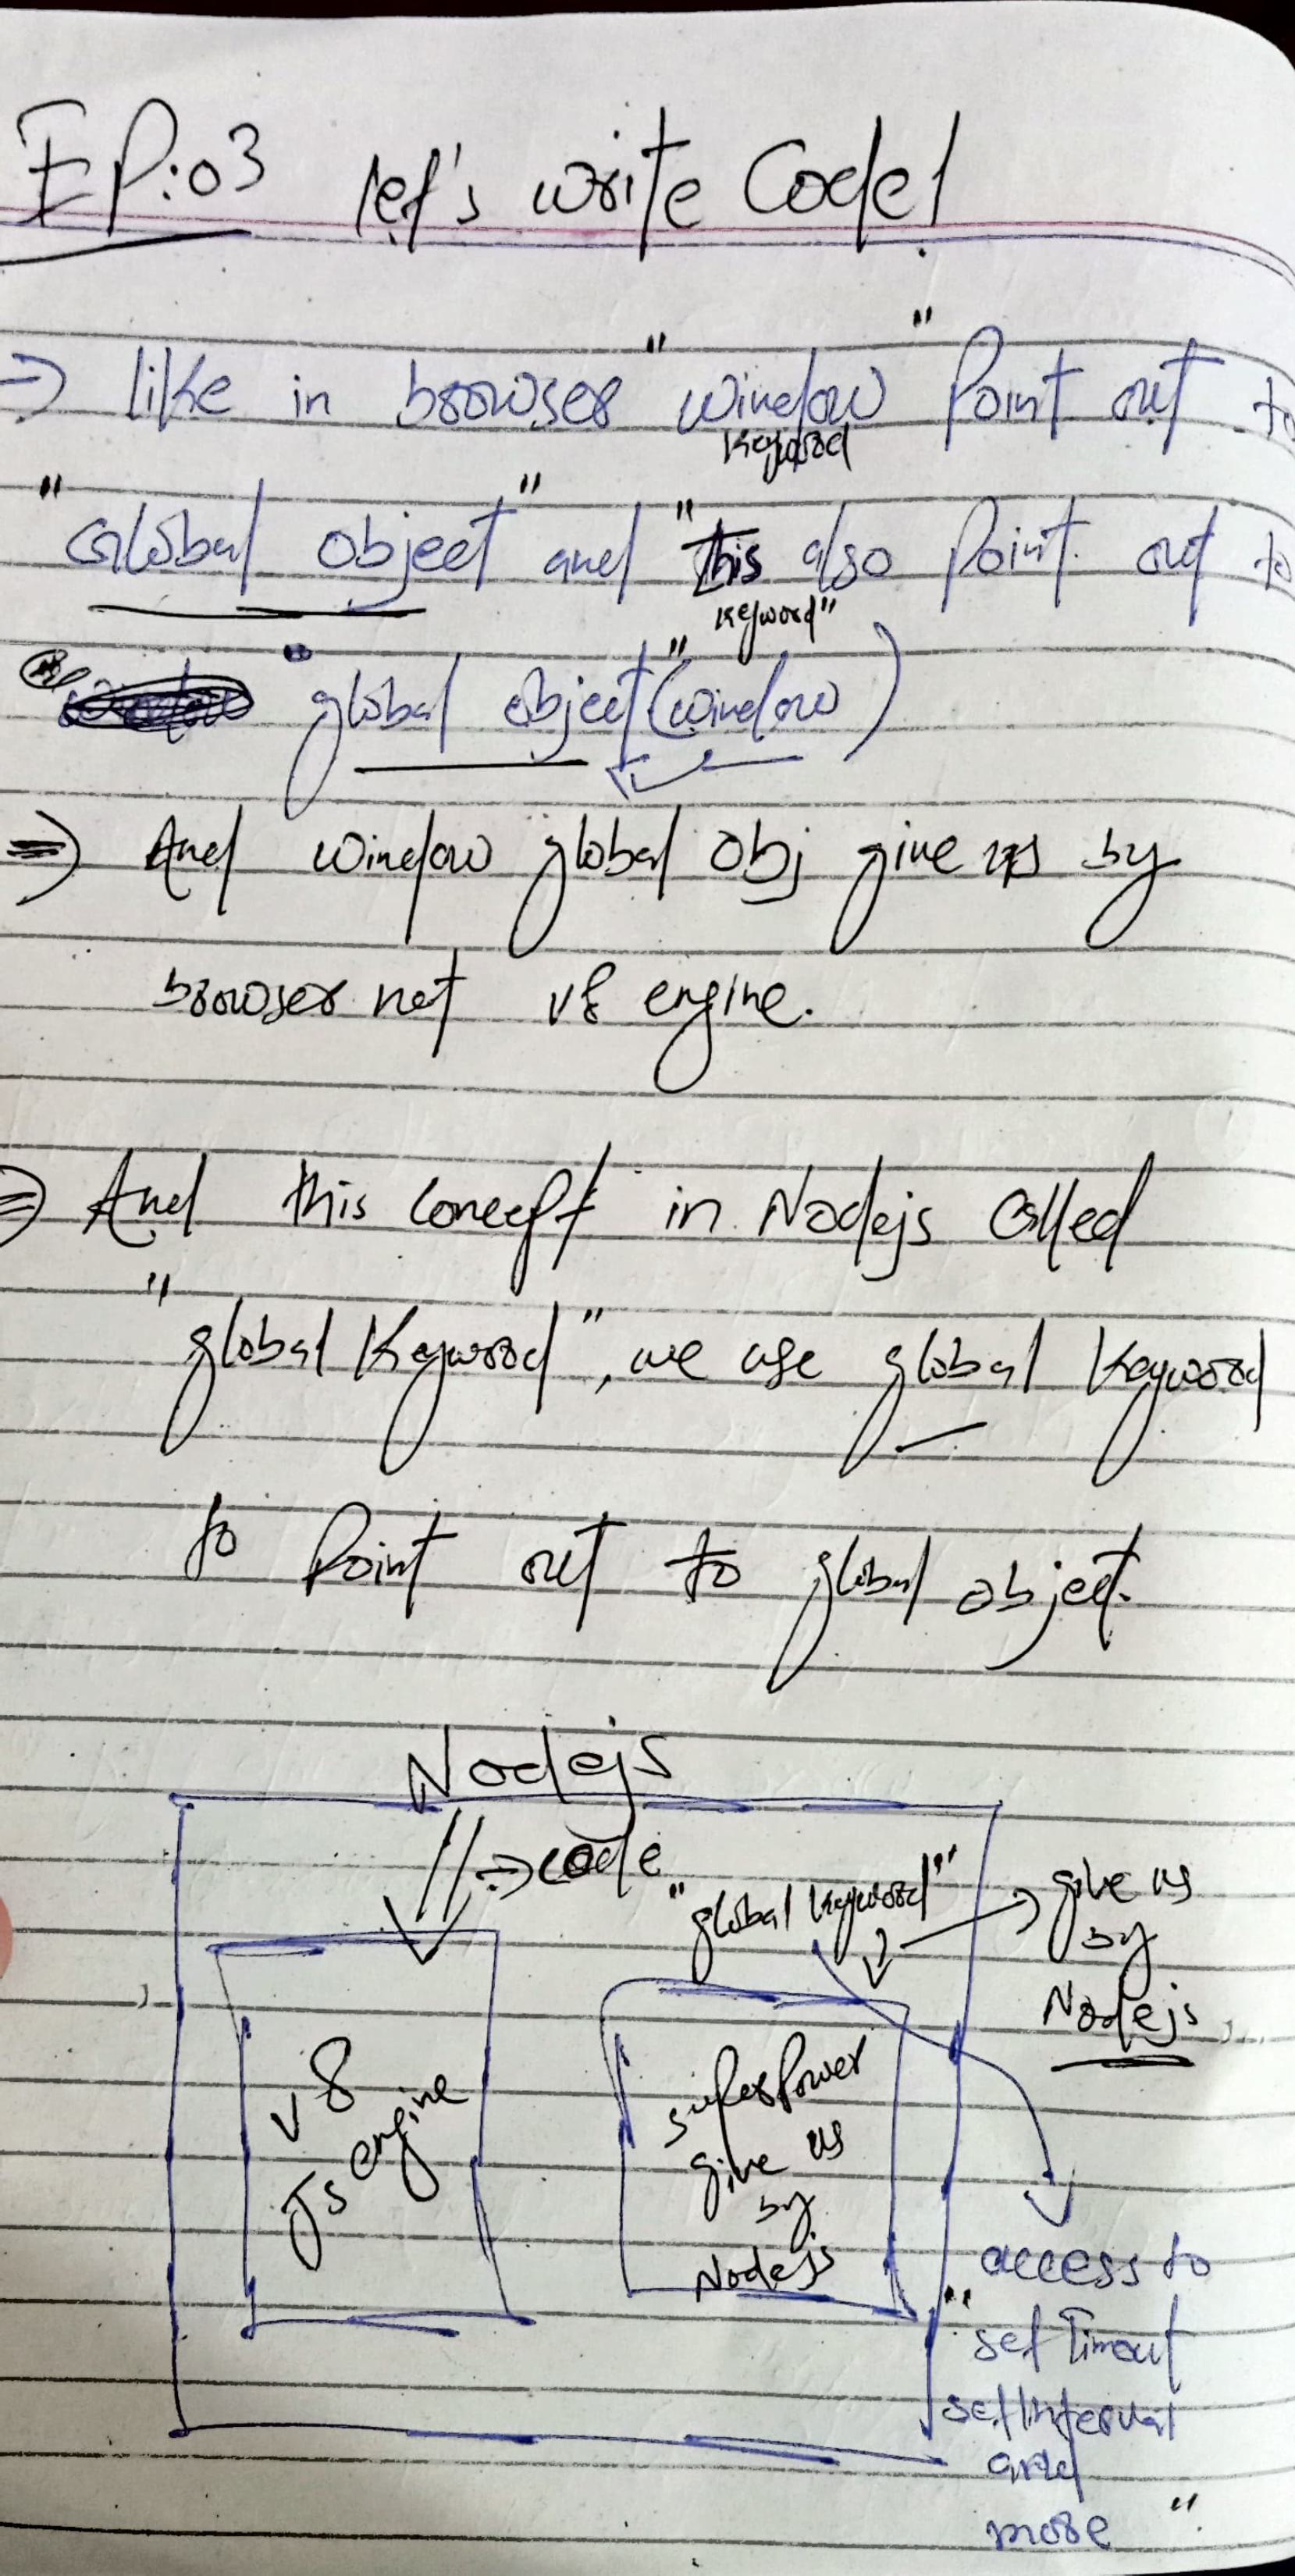 EP:03 let's write Code!
=> like in browser "window" Point out to
keyword
"Global object" and "this also Point out to
keyword"
"global object" (window)
=> And window global obj give us by
browser not v8 engine.
=> And this concept in Nodejs called
"global Keyword", we use global keyword
to Point out to global object.
Nodejs
=> code
"global keyword"
give us
by
Nodejs
v8
Js engine
superPower
give us
by
Nodejs
access to
"setTimout
setInterval
and
more"